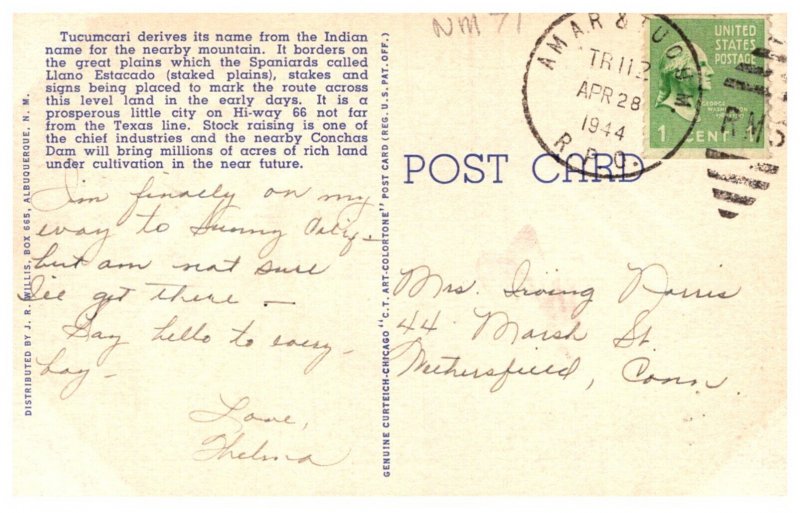 Tucumcari derives its name from the Indian
name for the nearby mountain. It borders on
the great plains which the Spaniards called
Llano Estacado (staked plains), stakes and
signs being placed to mark the route across
this level land in the early days. It is a
prosperous little city on Hi-way 66 not far
from the Texas line. Stock raising is one of
the chief industries and the nearby Conchas
Dam will bring millions of acres of rich land
under cultivation in the near future.
I'm finally on my
way to Sunny Calif-
but am not sure
I'll get there —
Say hello to every-
boy-
Love,
Thelma
DISTRIBUTED BY J. R. WILLIS, BOX 665, ALBUQUERQUE, N. M.
GENUINE CURTEICH-CHICAGO "C.T. ART-COLORTONE" POST CARD (REG. U.S. PAT. OFF.)
NM 71
AMAR & TUCUM
TR 112
APR 28
1944
R.P.O.
UNITED
STATES
POSTAGE
GEORGE
WASHINGTON
1 CENT 1
RM
POST CARD
Mrs. Irving Norris
44 Marsh St.
Wethersfield, Conn.